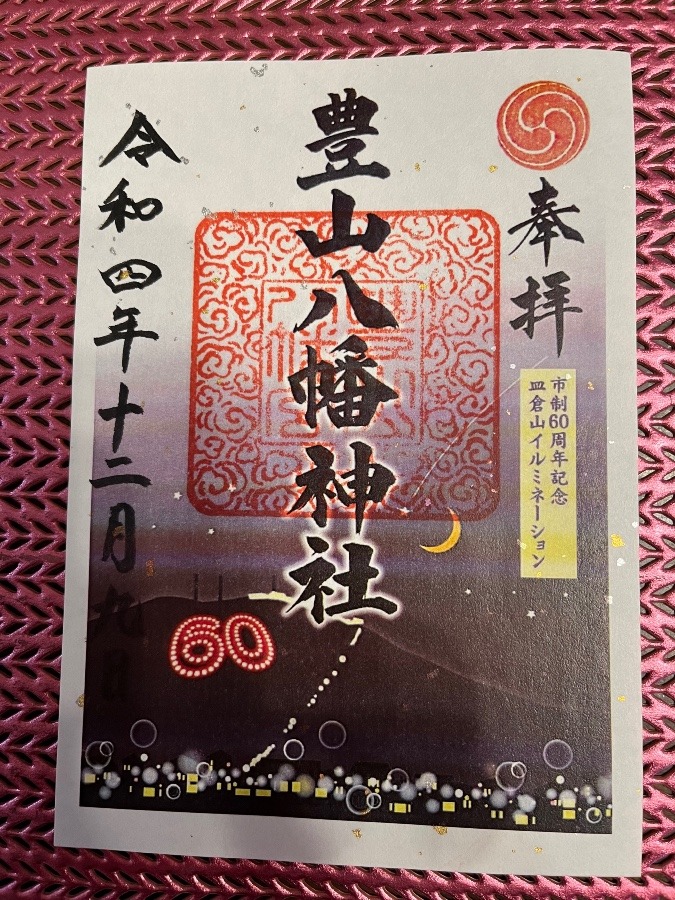 奉拝
市制60周年記念
皿倉山イルミネーション
豊山八幡神社
令和四年十二月九日
60